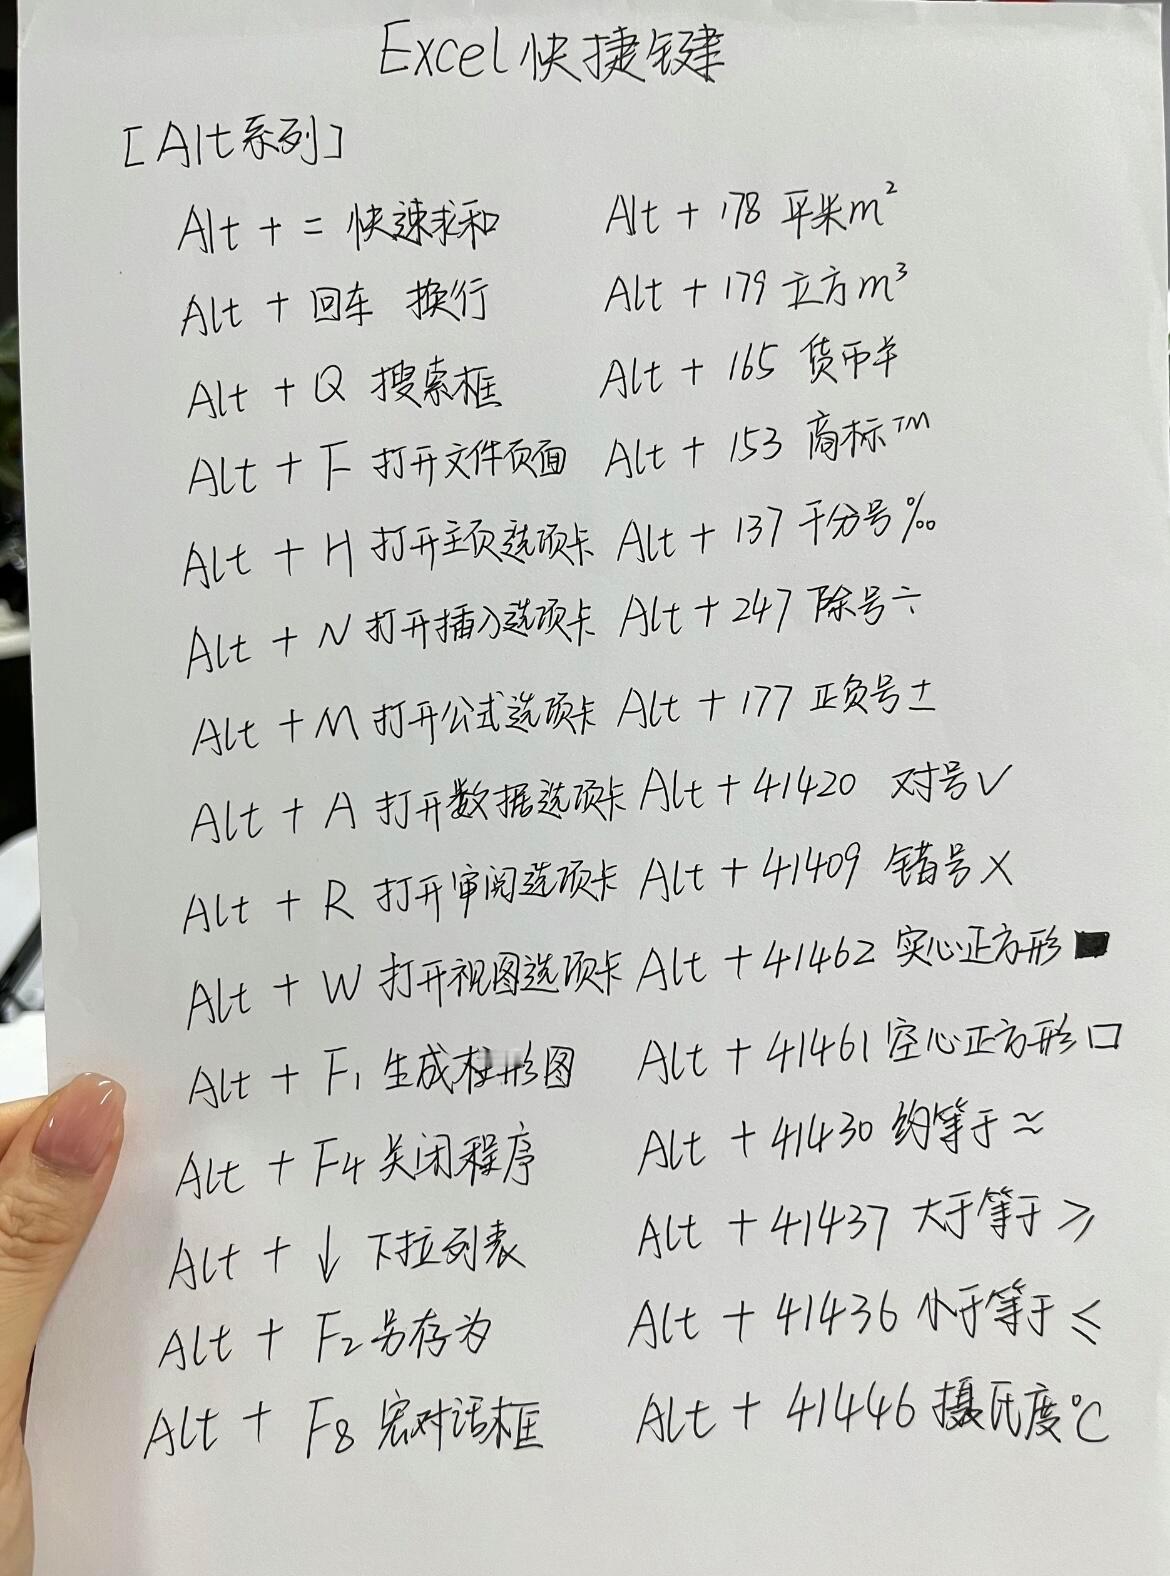 Excel 快捷键
[Alt系列]
Alt + = 快速求和
Alt + 回车 换行
Alt + Q 搜索框
Alt + F 打开文件页面
Alt + H 打开主页选项卡
Alt + N 打开插入选项卡
Alt + M 打开公式选项卡
Alt + A 打开数据选项卡
Alt + R 打开审阅选项卡
Alt + W 打开视图选项卡
Alt + F1 生成柱形图
Alt + F4 关闭程序
Alt + ↓ 下拉列表
Alt + F2 另存为
Alt + F8 宏对话框
Alt + 178 平米m²
Alt + 179 立方m³
Alt + 165 货币羊
Alt + 153 商标™
Alt + 137 千分号‰
Alt + 247 除号÷
Alt + 177 正负号±
Alt + 41420 对号√
Alt + 41409 错号×
Alt + 41462 实心正方形■
Alt + 41461 空心正方形口
Alt + 41430 约等于≈
Alt + 41437 大于等于≥
Alt + 41436 小于等于≤
Alt + 41446 摄氏度℃